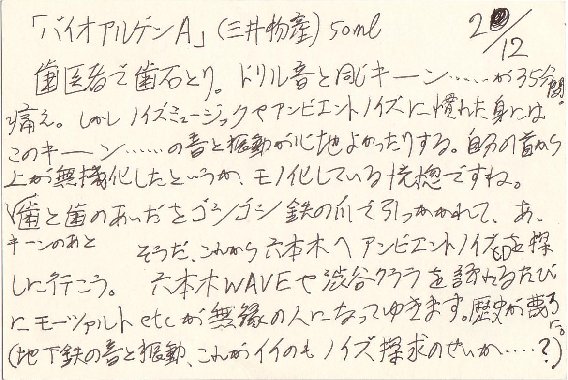 「バイオアルゲンA」(三井物産) 50ml 20/12
歯医者で歯石とり。ドリル音と同じキーン……が35分間。
痛え。しかしノイズミュージックやアンビエントノイズに慣れた身には
このキーン……の音と振動が心地よかったりする。自分の首から
上が無機化したというか、モノ化している恍惚ですね。
歯と歯のあいだをゴシゴシ鉄の爪で引っかかれて、あ、
キーンのあと そうだ、これから六本木へアンビエントノイズCDを探
しに行こう。 六本木WAVEや渋谷クララを訪れるたび
にモーツァルトetcが無縁の人になってゆきます。歴史が夢みる。
(地下鉄の音と振動、これがイイのもノイズ探求のせいか……?)